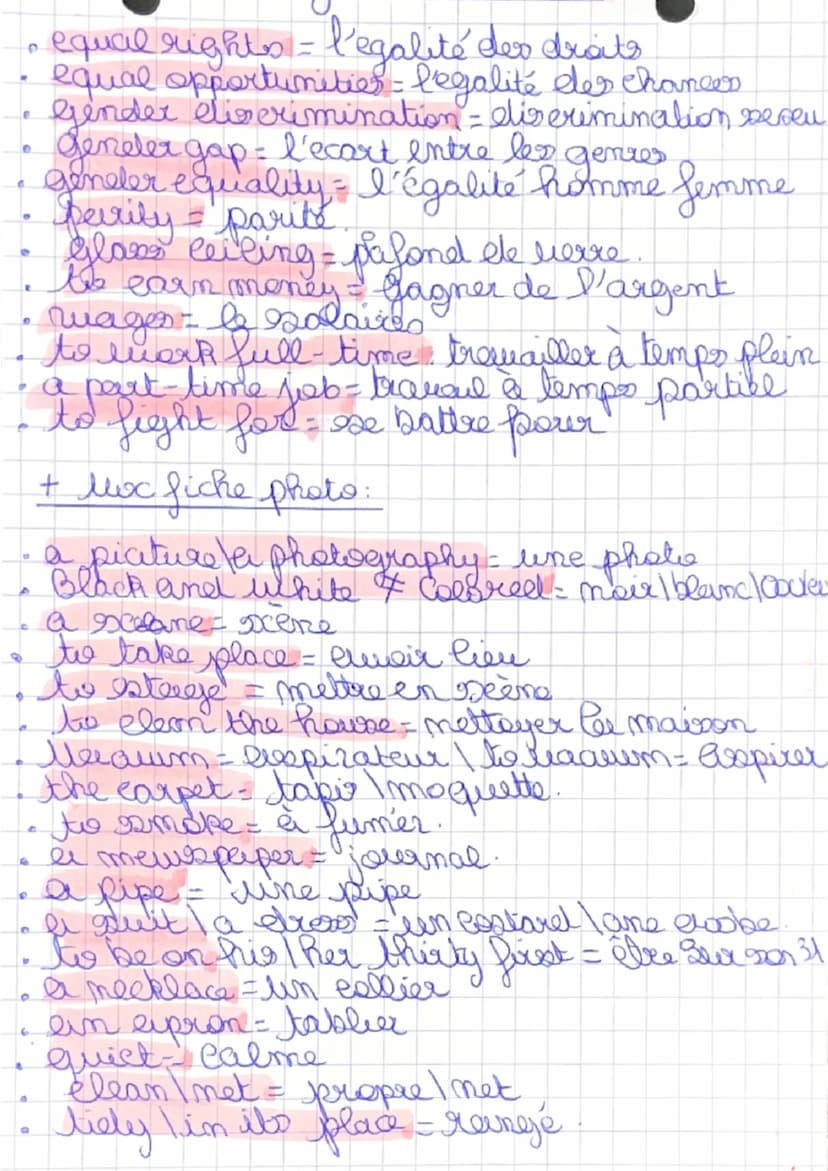 • equal rights = l'egalité des droits
• equal opportunities = l'egalité des chances
• gender discrimination = discrimination sexeu
• gender gap = l'ecart entre les genres
• gender equality = l'égalité homme femme
• parity = parité
• glass ceiling = pafond de verre.
• to earn money = gagner de l'argent
• wages = le salaires
• to work full-time: travailler à temps plein
• a part-time job = travail à temps partiel
• to fight for = se battre pour
+ Voc fiche photo:
• a picture \ a photography = une photo
• Black and white ≠ Colored = noir \ blanc \ coule
• a scane = scène
• to take place = avoir lieu
• to stage = mettre en scène
• to clean the house = nettoyer la maison
• Vacuum = aspirateur \ to vacuum = aspirer
• the carpet = tapis \ moquette.
• to smoke = à fumer.
• a newspaper = journal.
• a pipe = une pipe
• a suit \ a dress = un costard \ une robe.
• to be on his \ her thirty first = être sur son 31
• a necklace = un collier
• an apron = tablier
• quiet = calme
• clean \ net = propre \ net
• tidy \ in its place = rangé.